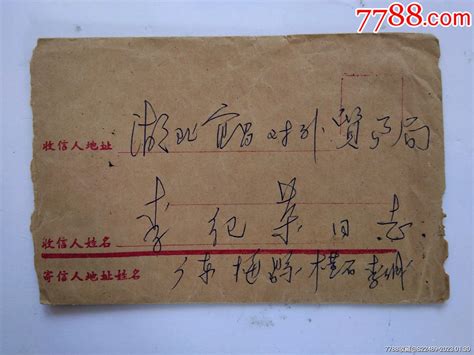 7788.com
收信人地址 湖北宜昌对外贸易局
收信人姓名 李纪荣同志
寄信人地址姓名 广东梅县横石李